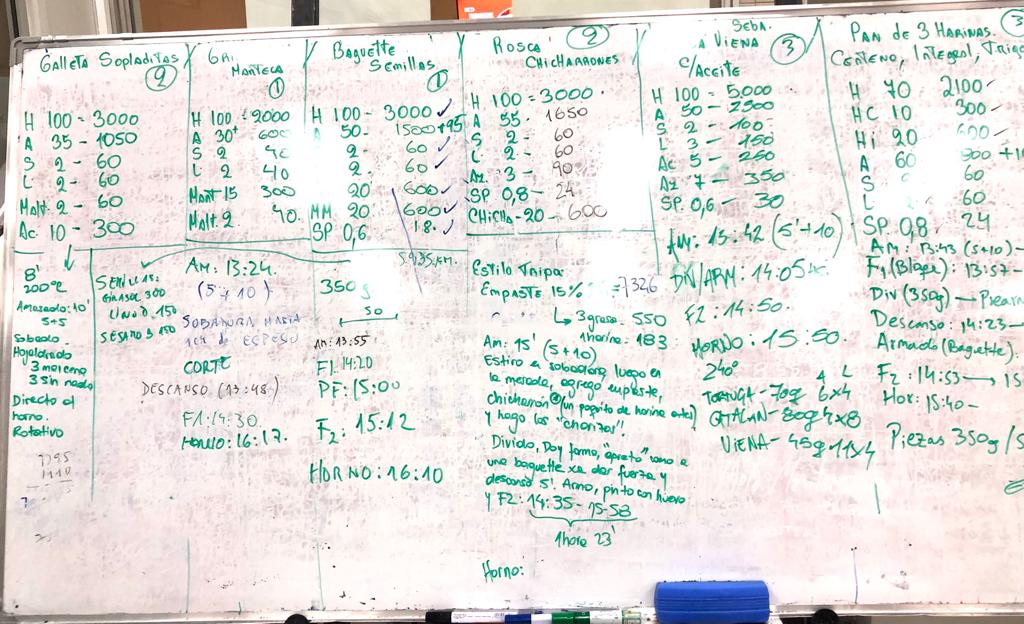 Galleta Sopladitas
2
H 100 = 3000
A 35 - 1050
S 2 - 60
L 2 - 60
Malt. 2 - 60
Ac. 10 - 300
8'
200°C
Amasado: 10'
5+5
Sobado
Hojaldrado
3 maicena
3 sin nada
Directo al
horno.
Rotativo
GIRASOL 300
LINO 150
SESAMO 150
Gri
Manteca
1
H 100 = 2000
A 30+ 600
S 2 40
L 2 40
Mant 15 300
Malt. 2 40.
AM: 13:24.
(5'+10)
SOBADORA HASTA
1cm DE ESPESO
CORTE
DESCANSO (13:48)
F1: 14:30.
HORNO: 16:17.
Baguette
Semillas
1
H 100 - 3000 ✓
A 50. 1500+95
2. 60 ✓
2. 60 ✓
20 600 ✓
MM 20 600 ✓
SP 0,6 18. ✓
350g
50
AM: 13:55
F1: 14:20
PF: 15:00
F2: 15:12
HORNO: 16:10
Rosca
Chicharrones
2
H 100 = 3000
A 55. 1650
S 2 - 60
L 2 - 60
Az. 3 - 90
SP 0,8 - 24
CHICHA - 20 - 600
Estilo Tripa:
Empaste 15% = 732,6
↳ 3 grasa - 550
1 harina: 183
Am: 15' (5+10)
Estiro a sobadora, luego en
la mesada, agrego empaste,
chicharrón (un poquito de harina antes)
y hago los "chorizos".
Divido, Doy forma, "apreto" como a
una baguette xa dar fuerza y
descanso 5'. Armo, pinto con huevo
y F2: 14:35 - 15:58
1 hora 23'
Horno:
SEBA.
A VIENA
3
C/ACEITE
H 100 = 5,000
A 50 - 2500
S 2 - 100
L 3 - 150
Ac 5 - 250
Az 7 - 350
SP. 0,6 - 30
AM: 13:42 (5'+10)
DIV/ARM: 14:05
F2: 14:50.
HORNO: 15:50.
240° A L
TORTUGA - 70g 6x4
CATALAN - 80g 4x8
VIENA - 45g 11x4
PAN DE 3 HARINAS.
3
Centeno, Integral, Trigo
H 70 2100
HC 10 300
Hi 20 600
A 60
S 60
L 60
SP 0,8 24
AM: 13:43 (5+10)
F1 (Bloque): 13:57
Div (350g)
Descanso: 14:23
Armado (Baguette).
F2: 14:53
Hor: 15:40
Piezas 350g